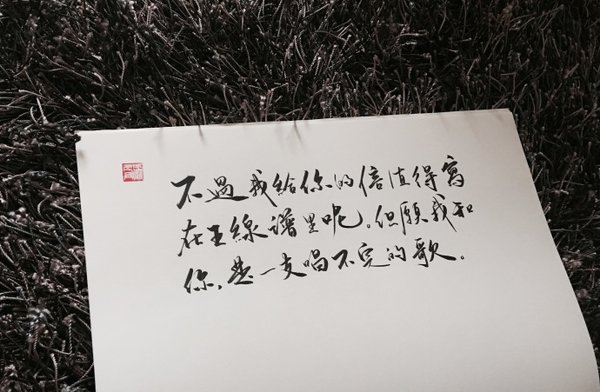 不過我給你的信值得寫
在五線譜里呢。但願我和
你,是一支唱不完的歌。